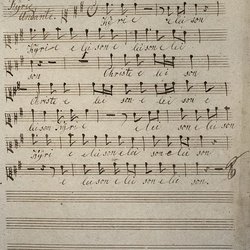 Kyrie
Andante.
Kyri e e lei son
Kyri e e lei son e lei son e lei
son Christe e lei son
Christe e lei son e lei son e
lei son Kyri e e lei son e lei son
Kyri e e lei son e lei son e lei son
e lei son e lei son e lei son.